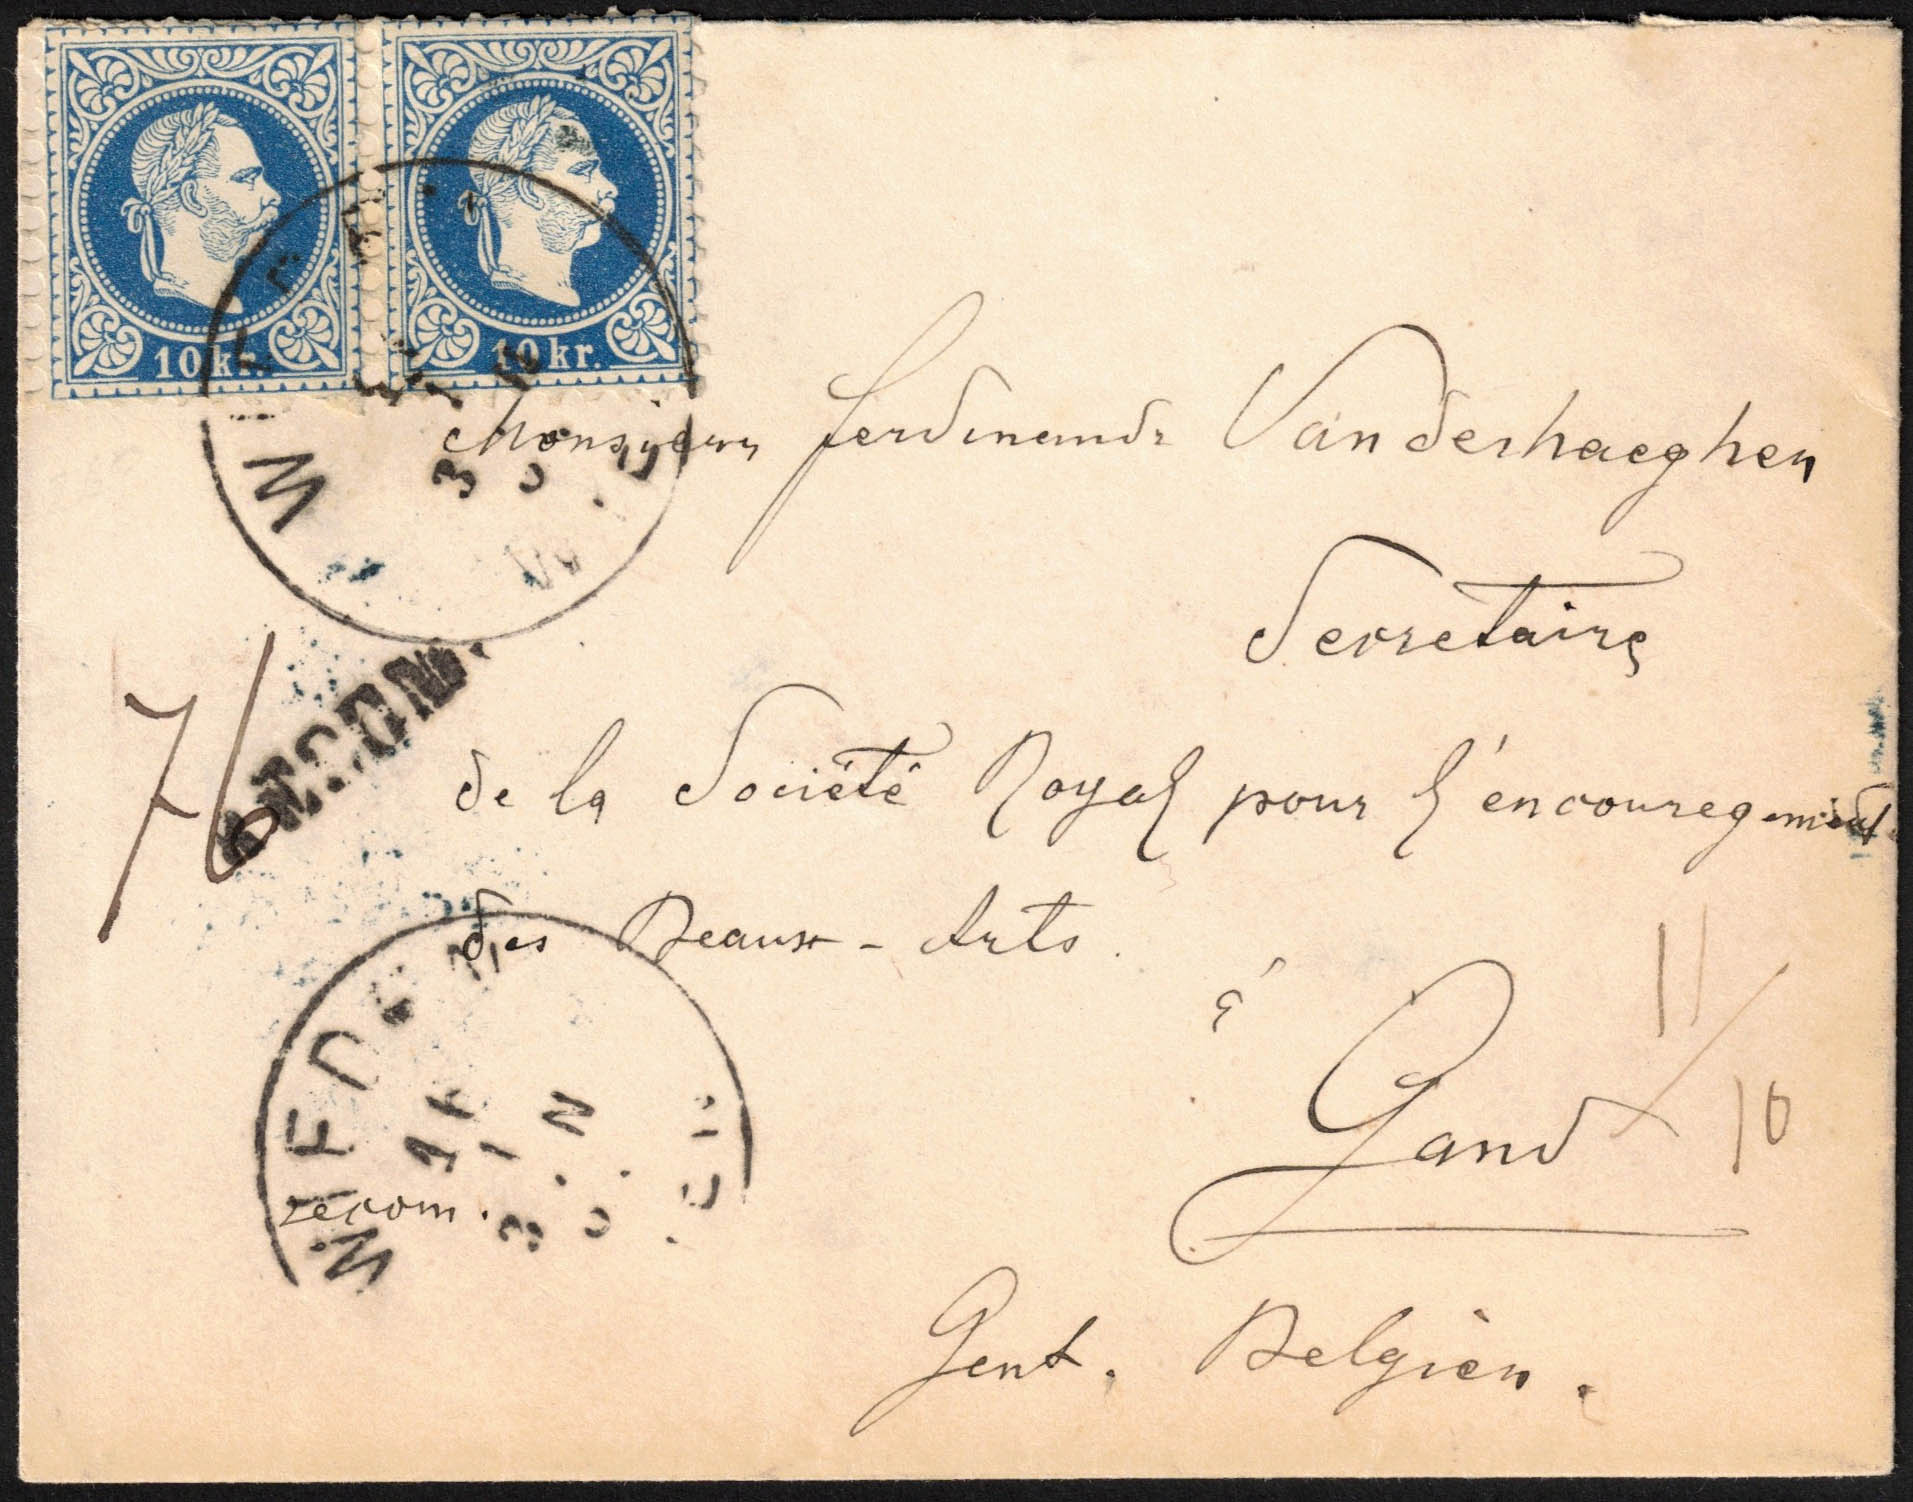 10 kr. 10 kr.
Monsieur Ferdinande Vanderhaeghen
Secretaire
76
RECOM.
de la Société Royal pour l'encouragement
des Beaux-Arts.
à
Gand
11/10
WIEDEN
WIEN
recom.
Gent. Belgien.